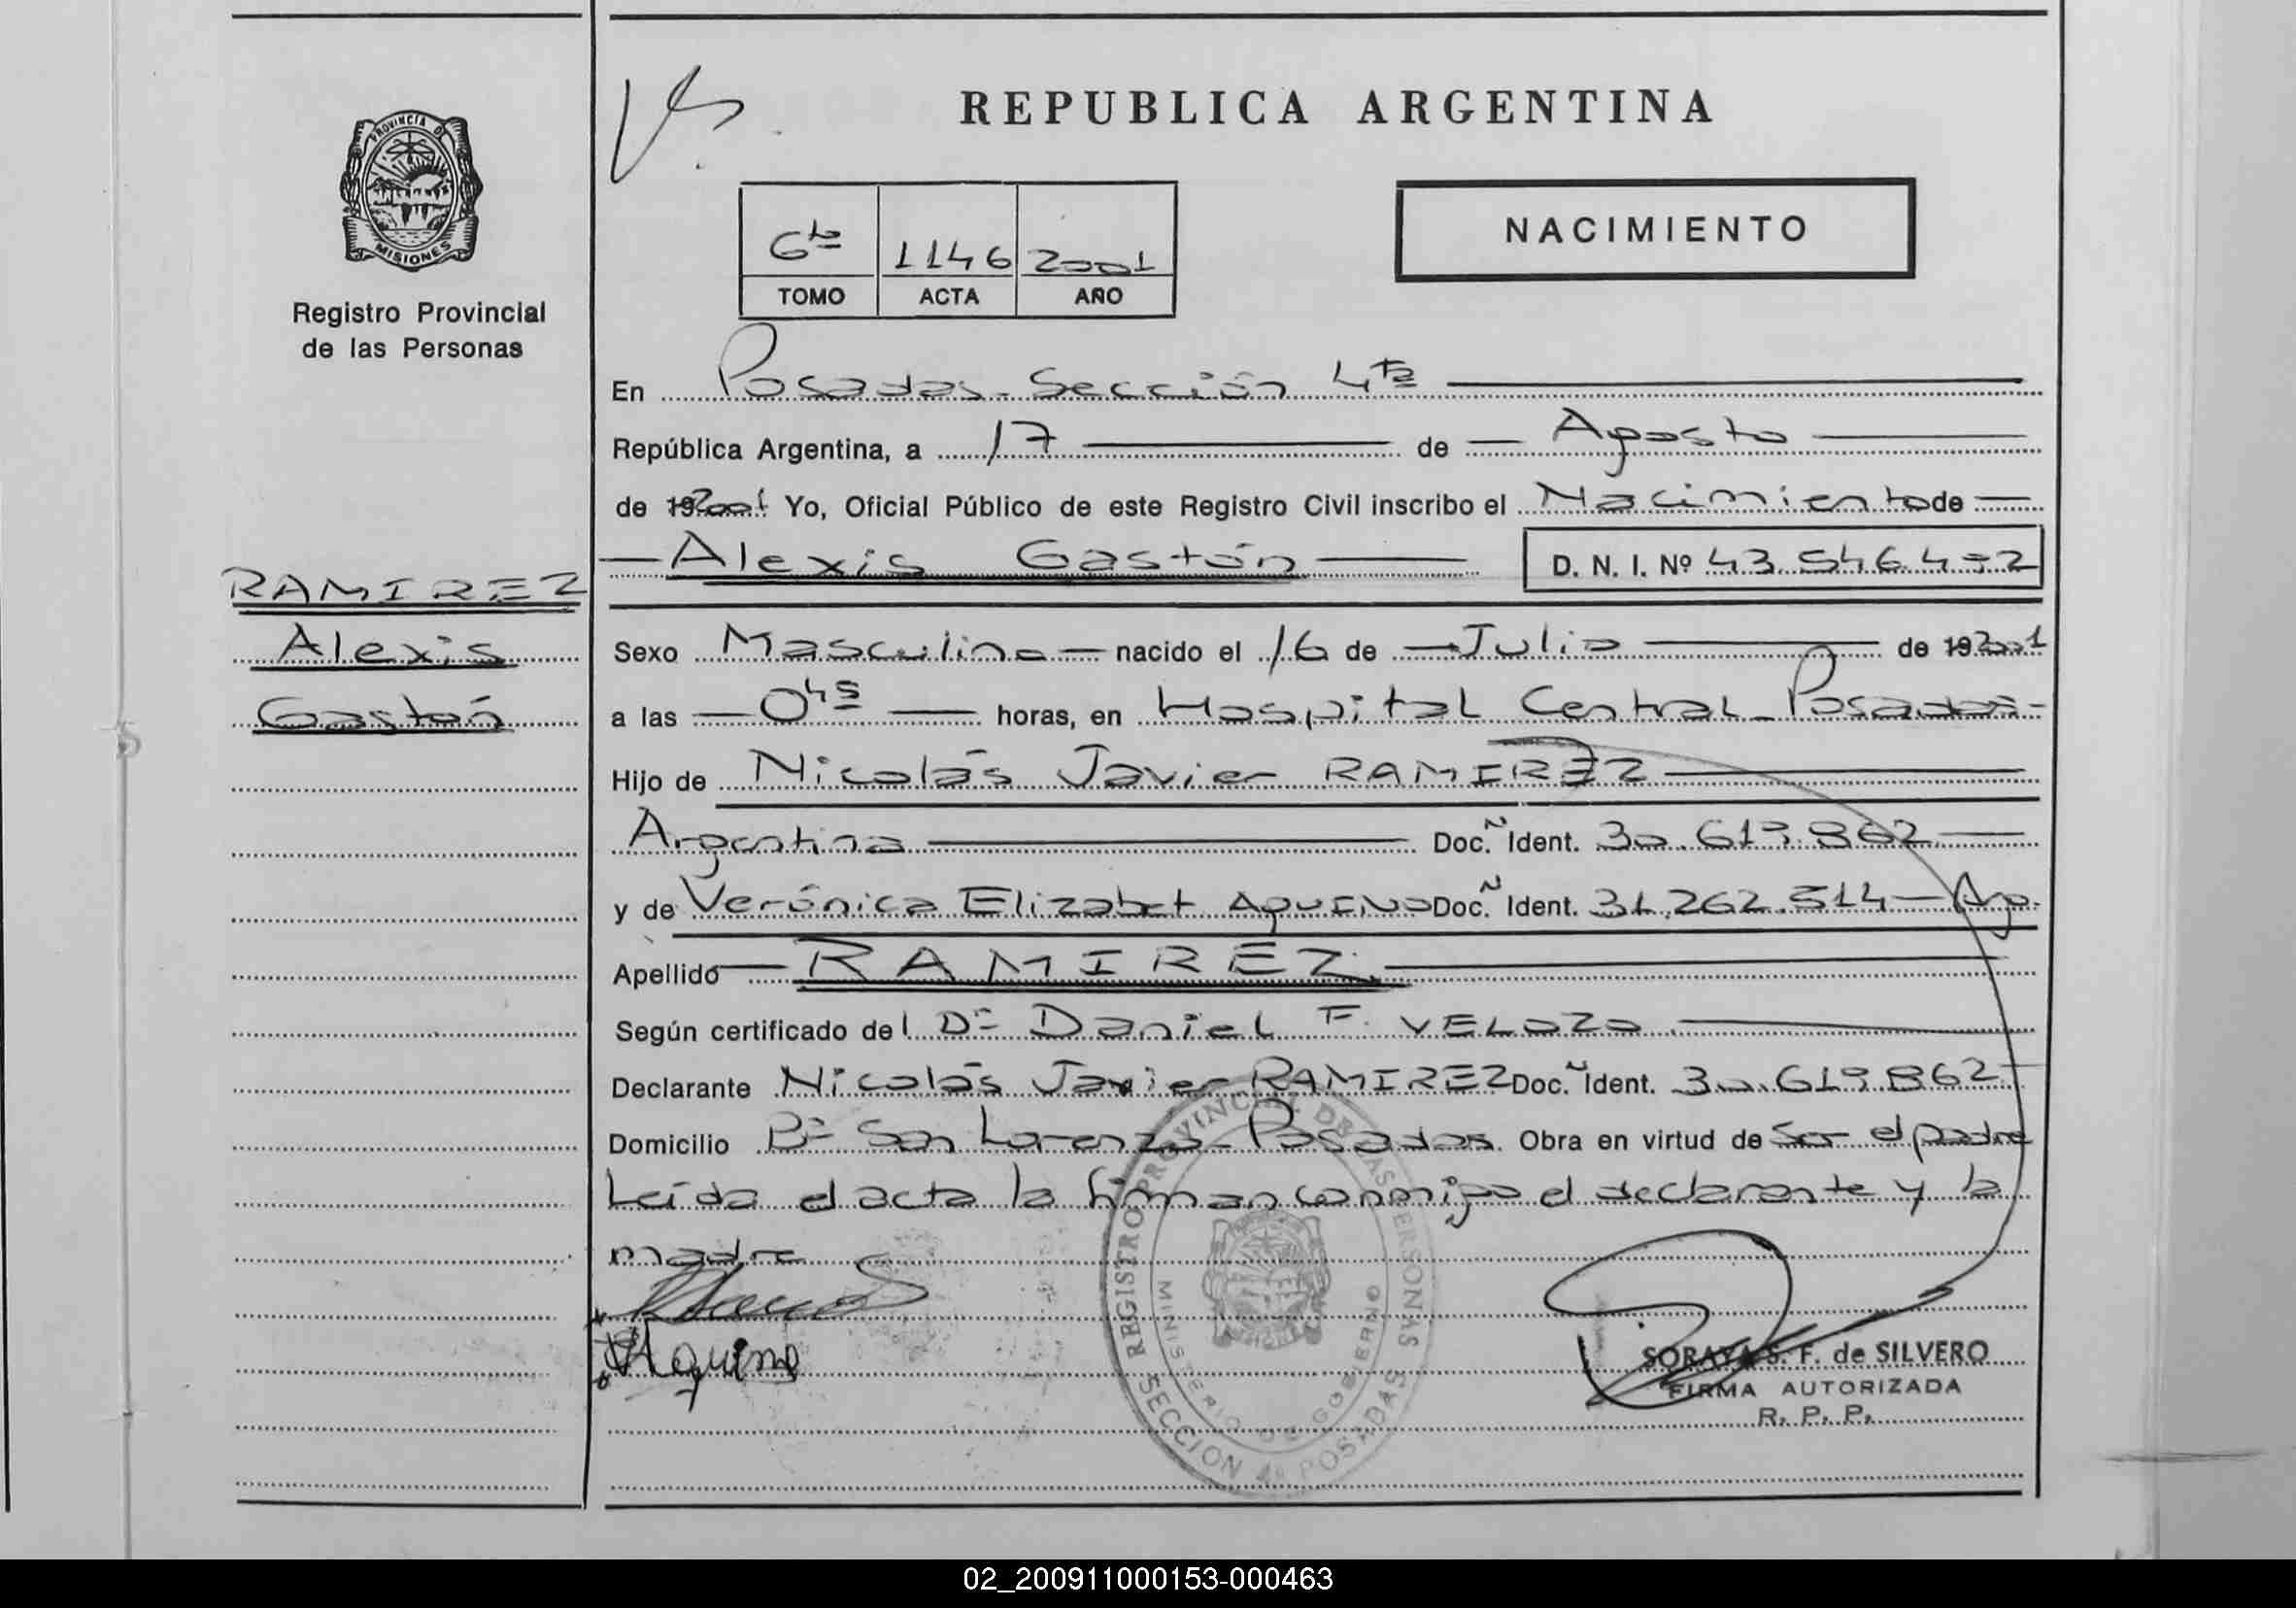 PROVINCIA DE
MISIONES
Registro Provincial
de las Personas
RAMIREZ
Alexis
Gastón
REPUBLICA ARGENTINA
6to 1146 2001
TOMO ACTA AÑO
NACIMIENTO
En Posadas - Sección 4ta
República Argentina, a 17 de Agosto
de 192001 Yo, Oficial Público de este Registro Civil inscribo el Nacimiento de
Alexis Gastón D. N. I. Nº
Sexo Masculino nacido el 16 de Julio de 192001
a las 0hs horas, en Hospital Central - Posadas -
Hijo de Nicolás Javier RAMIREZ
Argentina Doc.N Ident. 30.619.862
y de Verónica Elizabet AQUINO Doc.N Ident. 31.262.514 - Ag.
Apellido RAMIREZ
Según certificado del Dr Daniel F. VELOZO
Declarante Nicolás Javier RAMIREZ Doc.N Ident. 30.619.862
Domicilio Bº San Lorenzo - Posadas. Obra en virtud de Ser el padre
Leída el acta la firman conmigo el declarante y la
madre
Aquino
REGISTRO PROVINCIAL DE LAS PERSONAS
MINISTERIO DE GOBIERNO
SECCION 4a POSADAS
SORAYA S. F. de SILVERO
FIRMA AUTORIZADA
R. P. P.
02_200911000153-000463